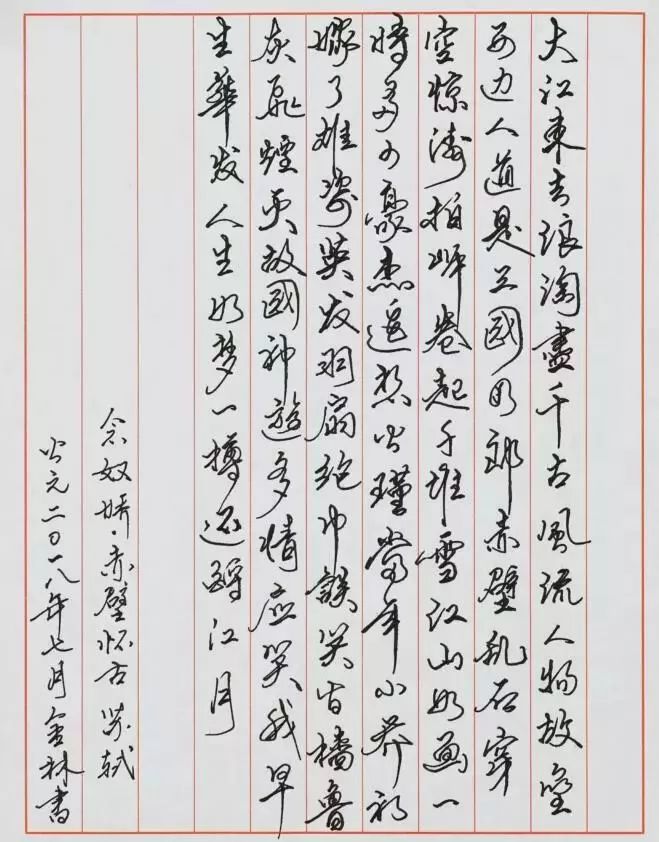 大江東去浪淘盡千古風流人物故壘
西边人道是三國周郎赤壁乱石穿
空惊涛拍岸卷起千堆雪江山如画一
時多少豪杰遥想公瑾當年小乔初
嫁了雄姿英发羽扇纶巾談笑间檣魯
灰飛煙灭故國神遊多情应笑我早
生華发人生如梦一樽还酹江月
念奴娇·赤壁怀古 苏轼
公元二〇一八年七月金林書